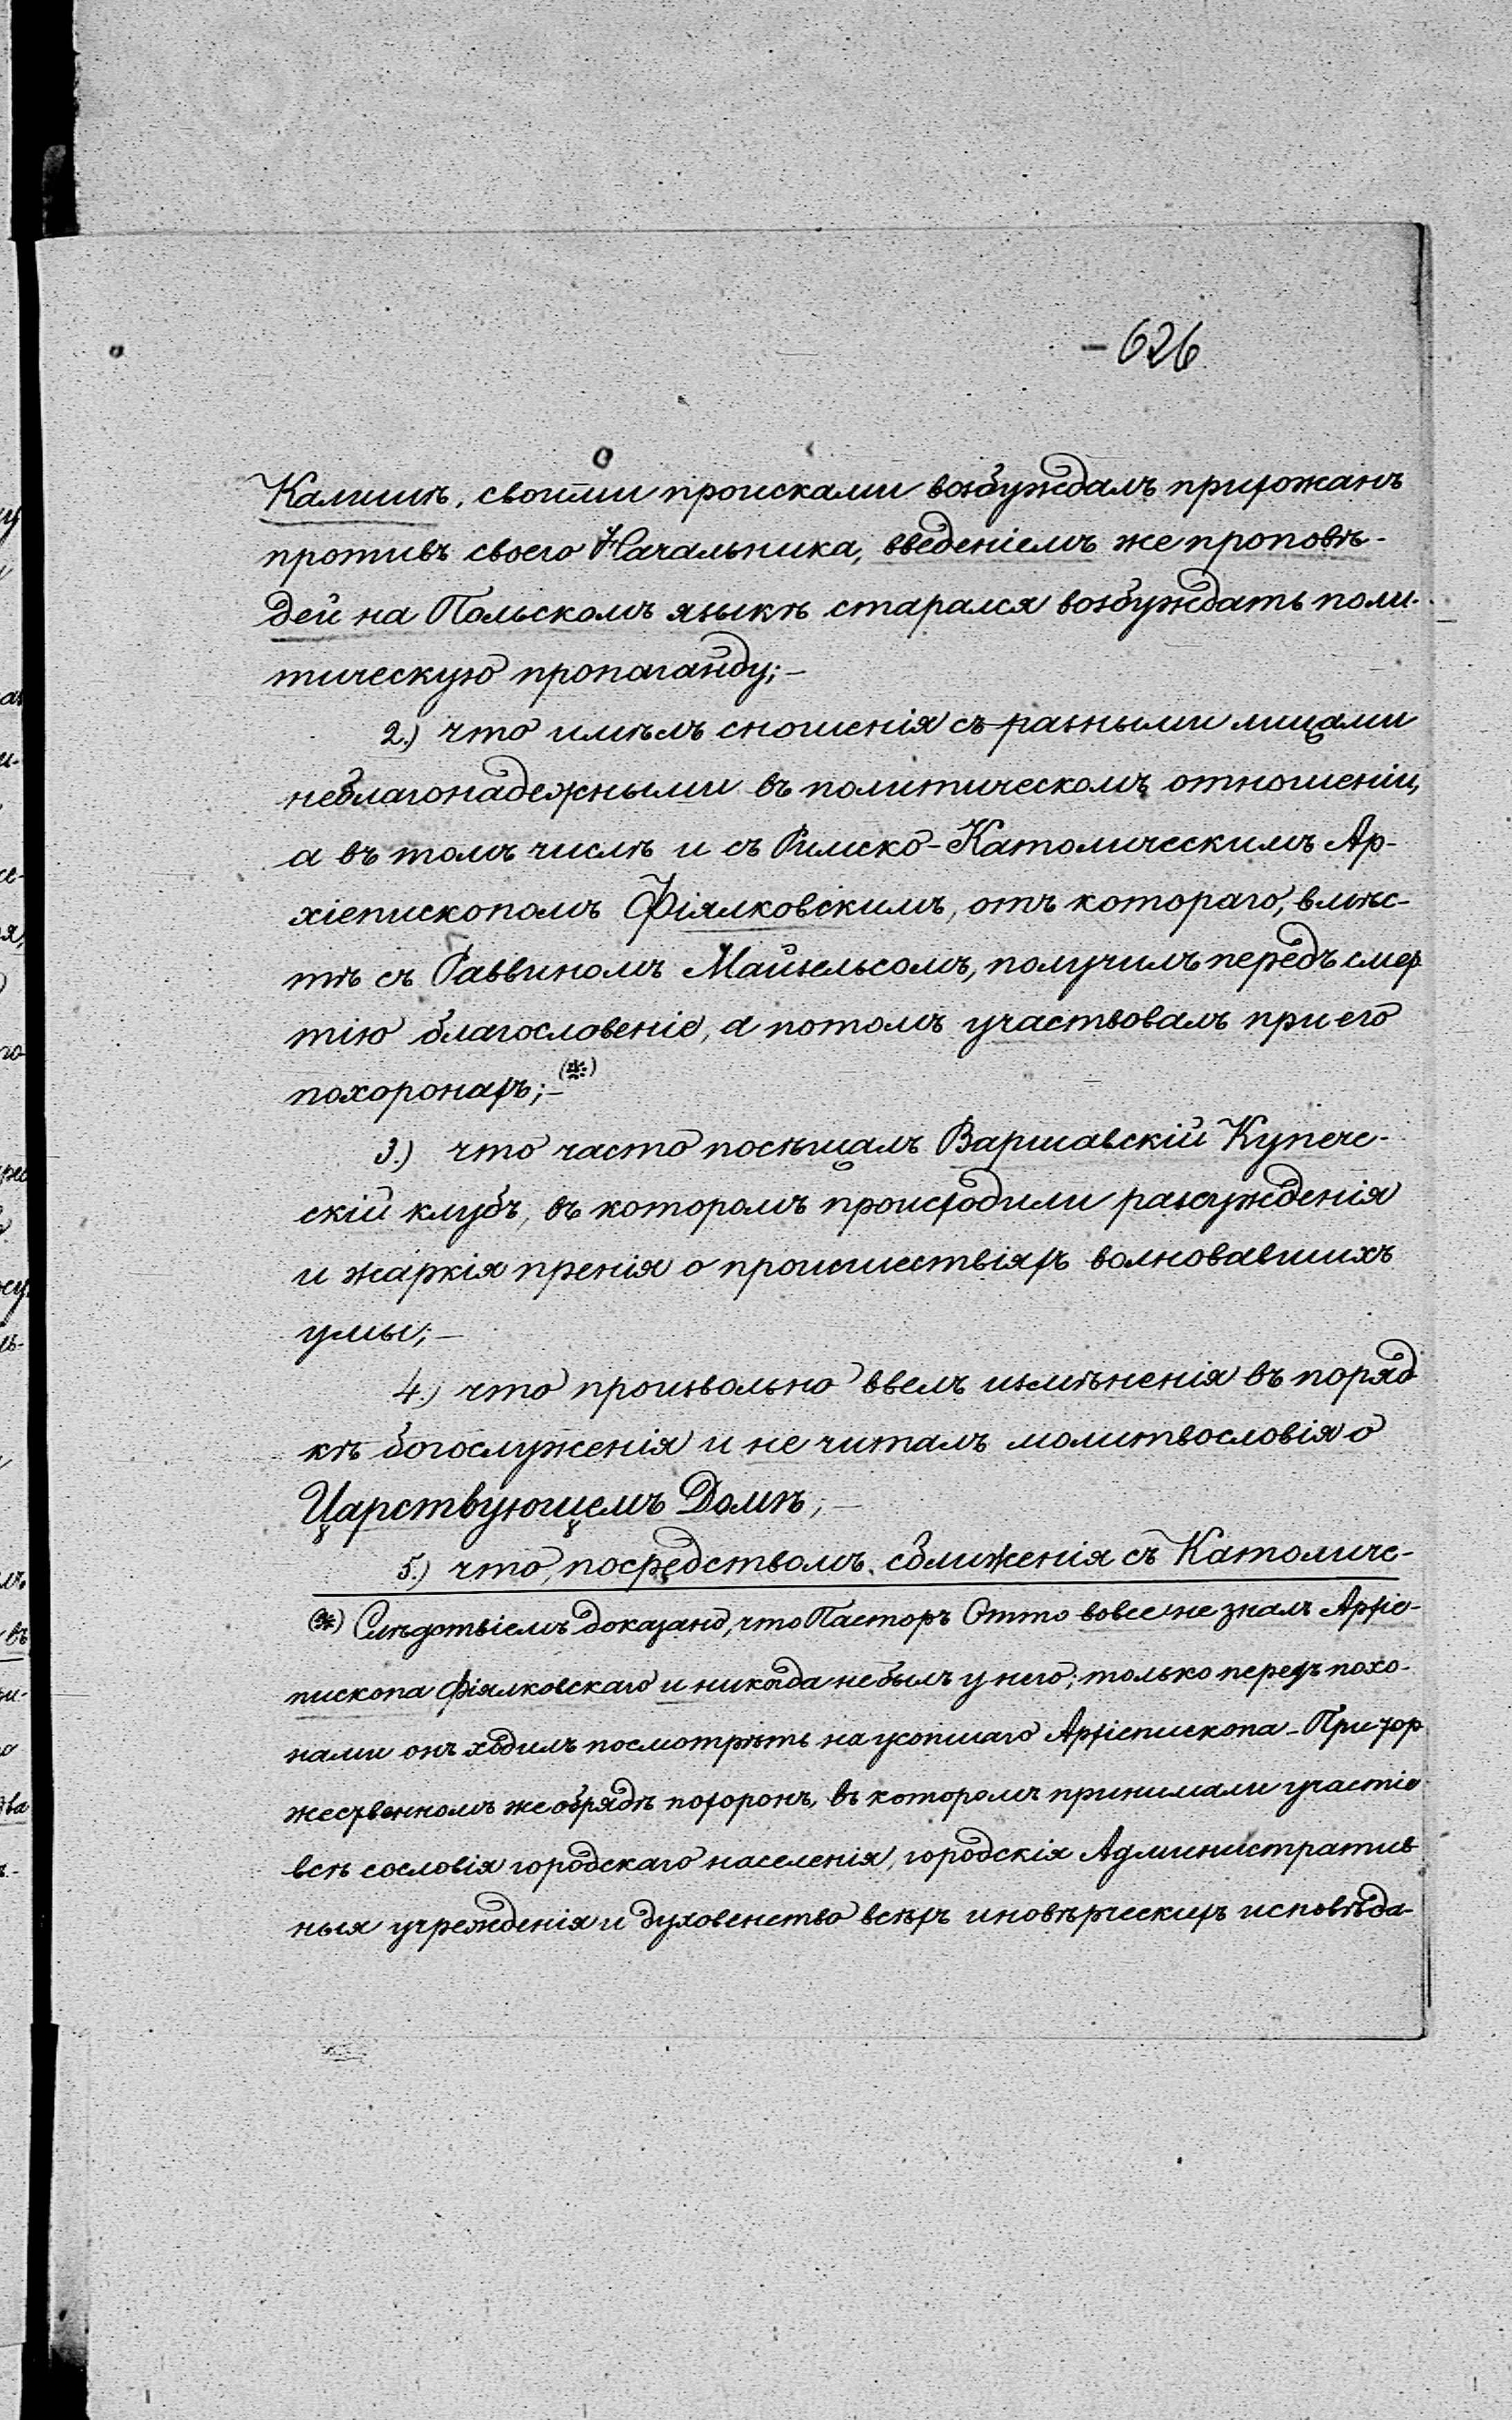 626
Калишѣ, своими происками возбуждалъ прихожанъ
противъ своего Начальника, введеніемъ же проповѣ-
дей на Польскомъ языкѣ старался возбуждать поли-
тическую пропаганду;-
2.) что имѣлъ сношенія съ разными лицами
неблагонадежными въ политическомъ отношеніи,
а въ томъ числѣ и съ Римско-Католическимъ Ар-
хіепископомъ Фіялковскимъ, отъ котораго, вмѣс-
тѣ съ Раввиномъ Майзельсомъ, получилъ передъ смер
тію благословеніе, а потомъ участвовалъ при его
похоронахъ;- (*)
3.) что часто посѣщалъ Варшавскій Купече-
скій клубъ, въ которомъ происходили разсужденія
и жаркія пренія о происшествіяхъ волновавшихъ
умы;-
4.) что произвольно ввелъ измѣненія въ поряд
кѣ богослуженія и не читалъ молитвословія о
Царствующемъ Домѣ;-
5.) что, посредствомъ сближенія съ Католиче-
(*) Слѣдствіемъ доказано, что Пасторъ Отто вовсе не зналъ Архіе-
пископа Фіялковскаго и никогда не былъ у него; только передъ похо-
нами онъ ходилъ посмотрѣть на усопшаго Архіепископа - При тор
жественномъ же обрядѣ похоронъ, въ которомъ принимали участіе
всѣ сословія городскаго населенія, городскія Административ
ныя учрежденія и духовенство всѣхъ иновѣрческихъ исповѣда-